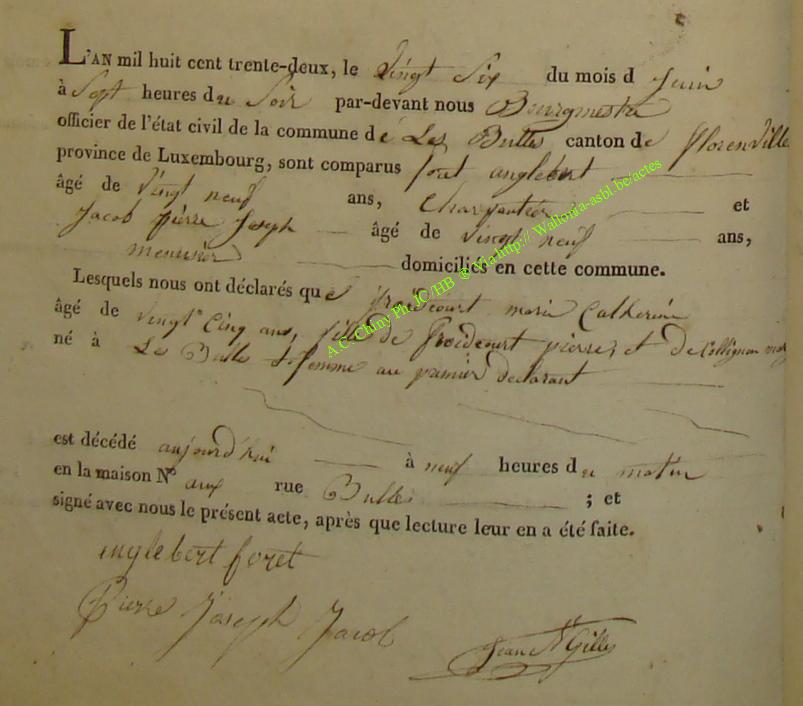 L'AN mil huit cent trente-deux, le vingt Six du mois d Juin
à Sept heures du Soir par-devant nous Bourgmestre
officier de l'état civil de la commune de Les Bulles canton de florenville
province de Luxembourg, sont comparus foret anglebert
âgé de vingt neuf ans, Charpentier et
Jacob pierre Joseph âgé de vingt neuf ans,
menusier domiciliés en cette commune.
Lesquels nous ont déclarés que froidcourt marie Catherine
âgé de vingt Cinq ans, fille de froidcourt pierre, et de Collignon
né à Les Bulle femme au premier declarant
est décédé aujourd'hui à neuf heures du matin
en la maison N° aux rue Bulles ; et
signé avec nous le présent acte, après que lecture leur en a été faite.
inglebert foret
Pierre Joseph Jacob
Jean N Gilles
A C-Chiny Ph JC/HB ® Via http:// Wallonia-asbl.be/actes